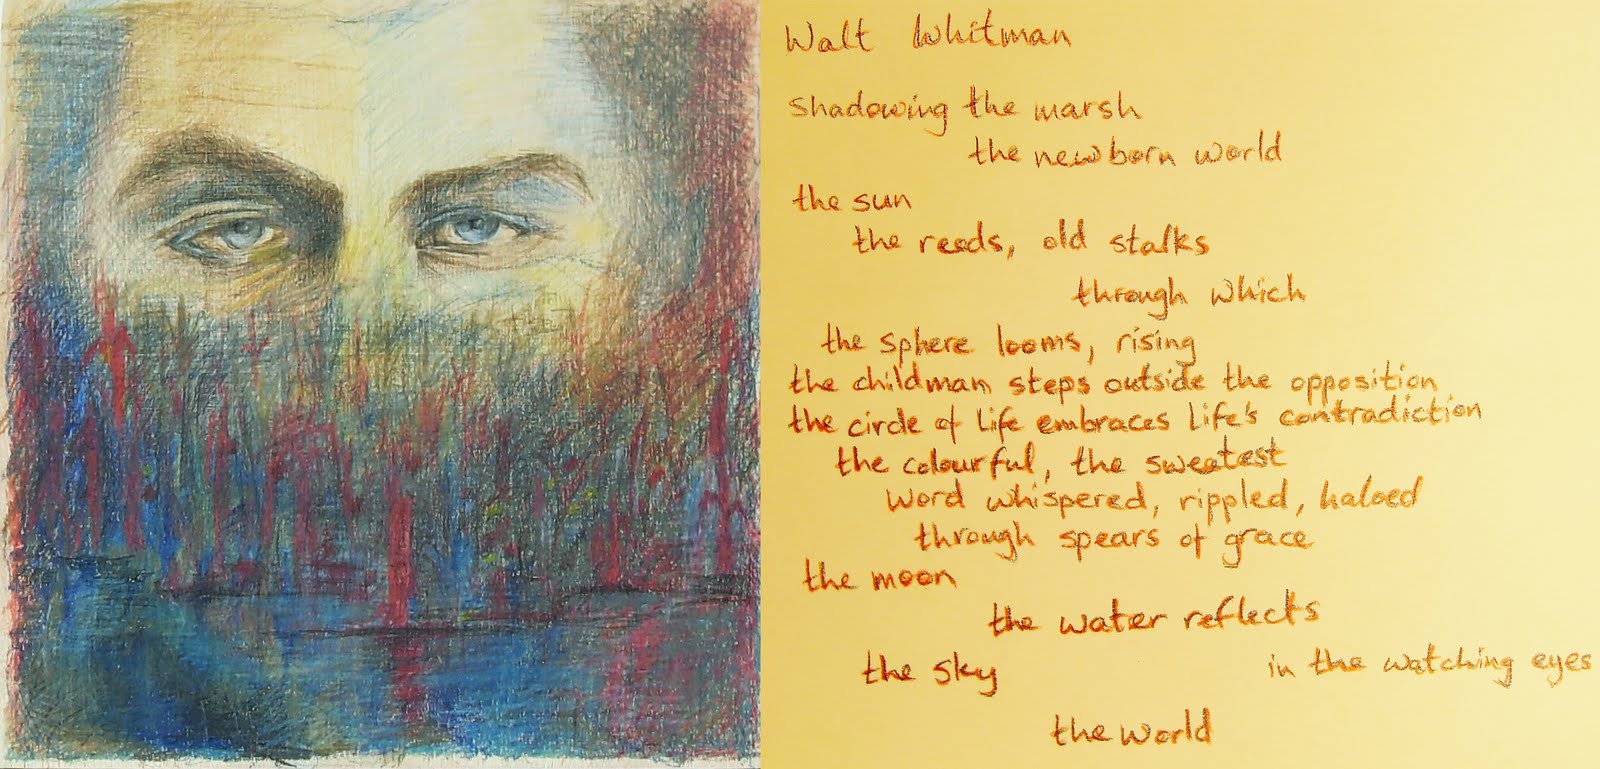 Walt Whitman
shadowing the marsh
the newborn world
the sun
the reeds, old stalks
through which
the sphere looms, rising
the childman steps outside the opposition
the circle of life embraces life's contradiction
the colourful, the sweetest
word whispered, rippled, haloed
through spears of grace
the moon
the water reflects
the sky in the watching eyes
the world